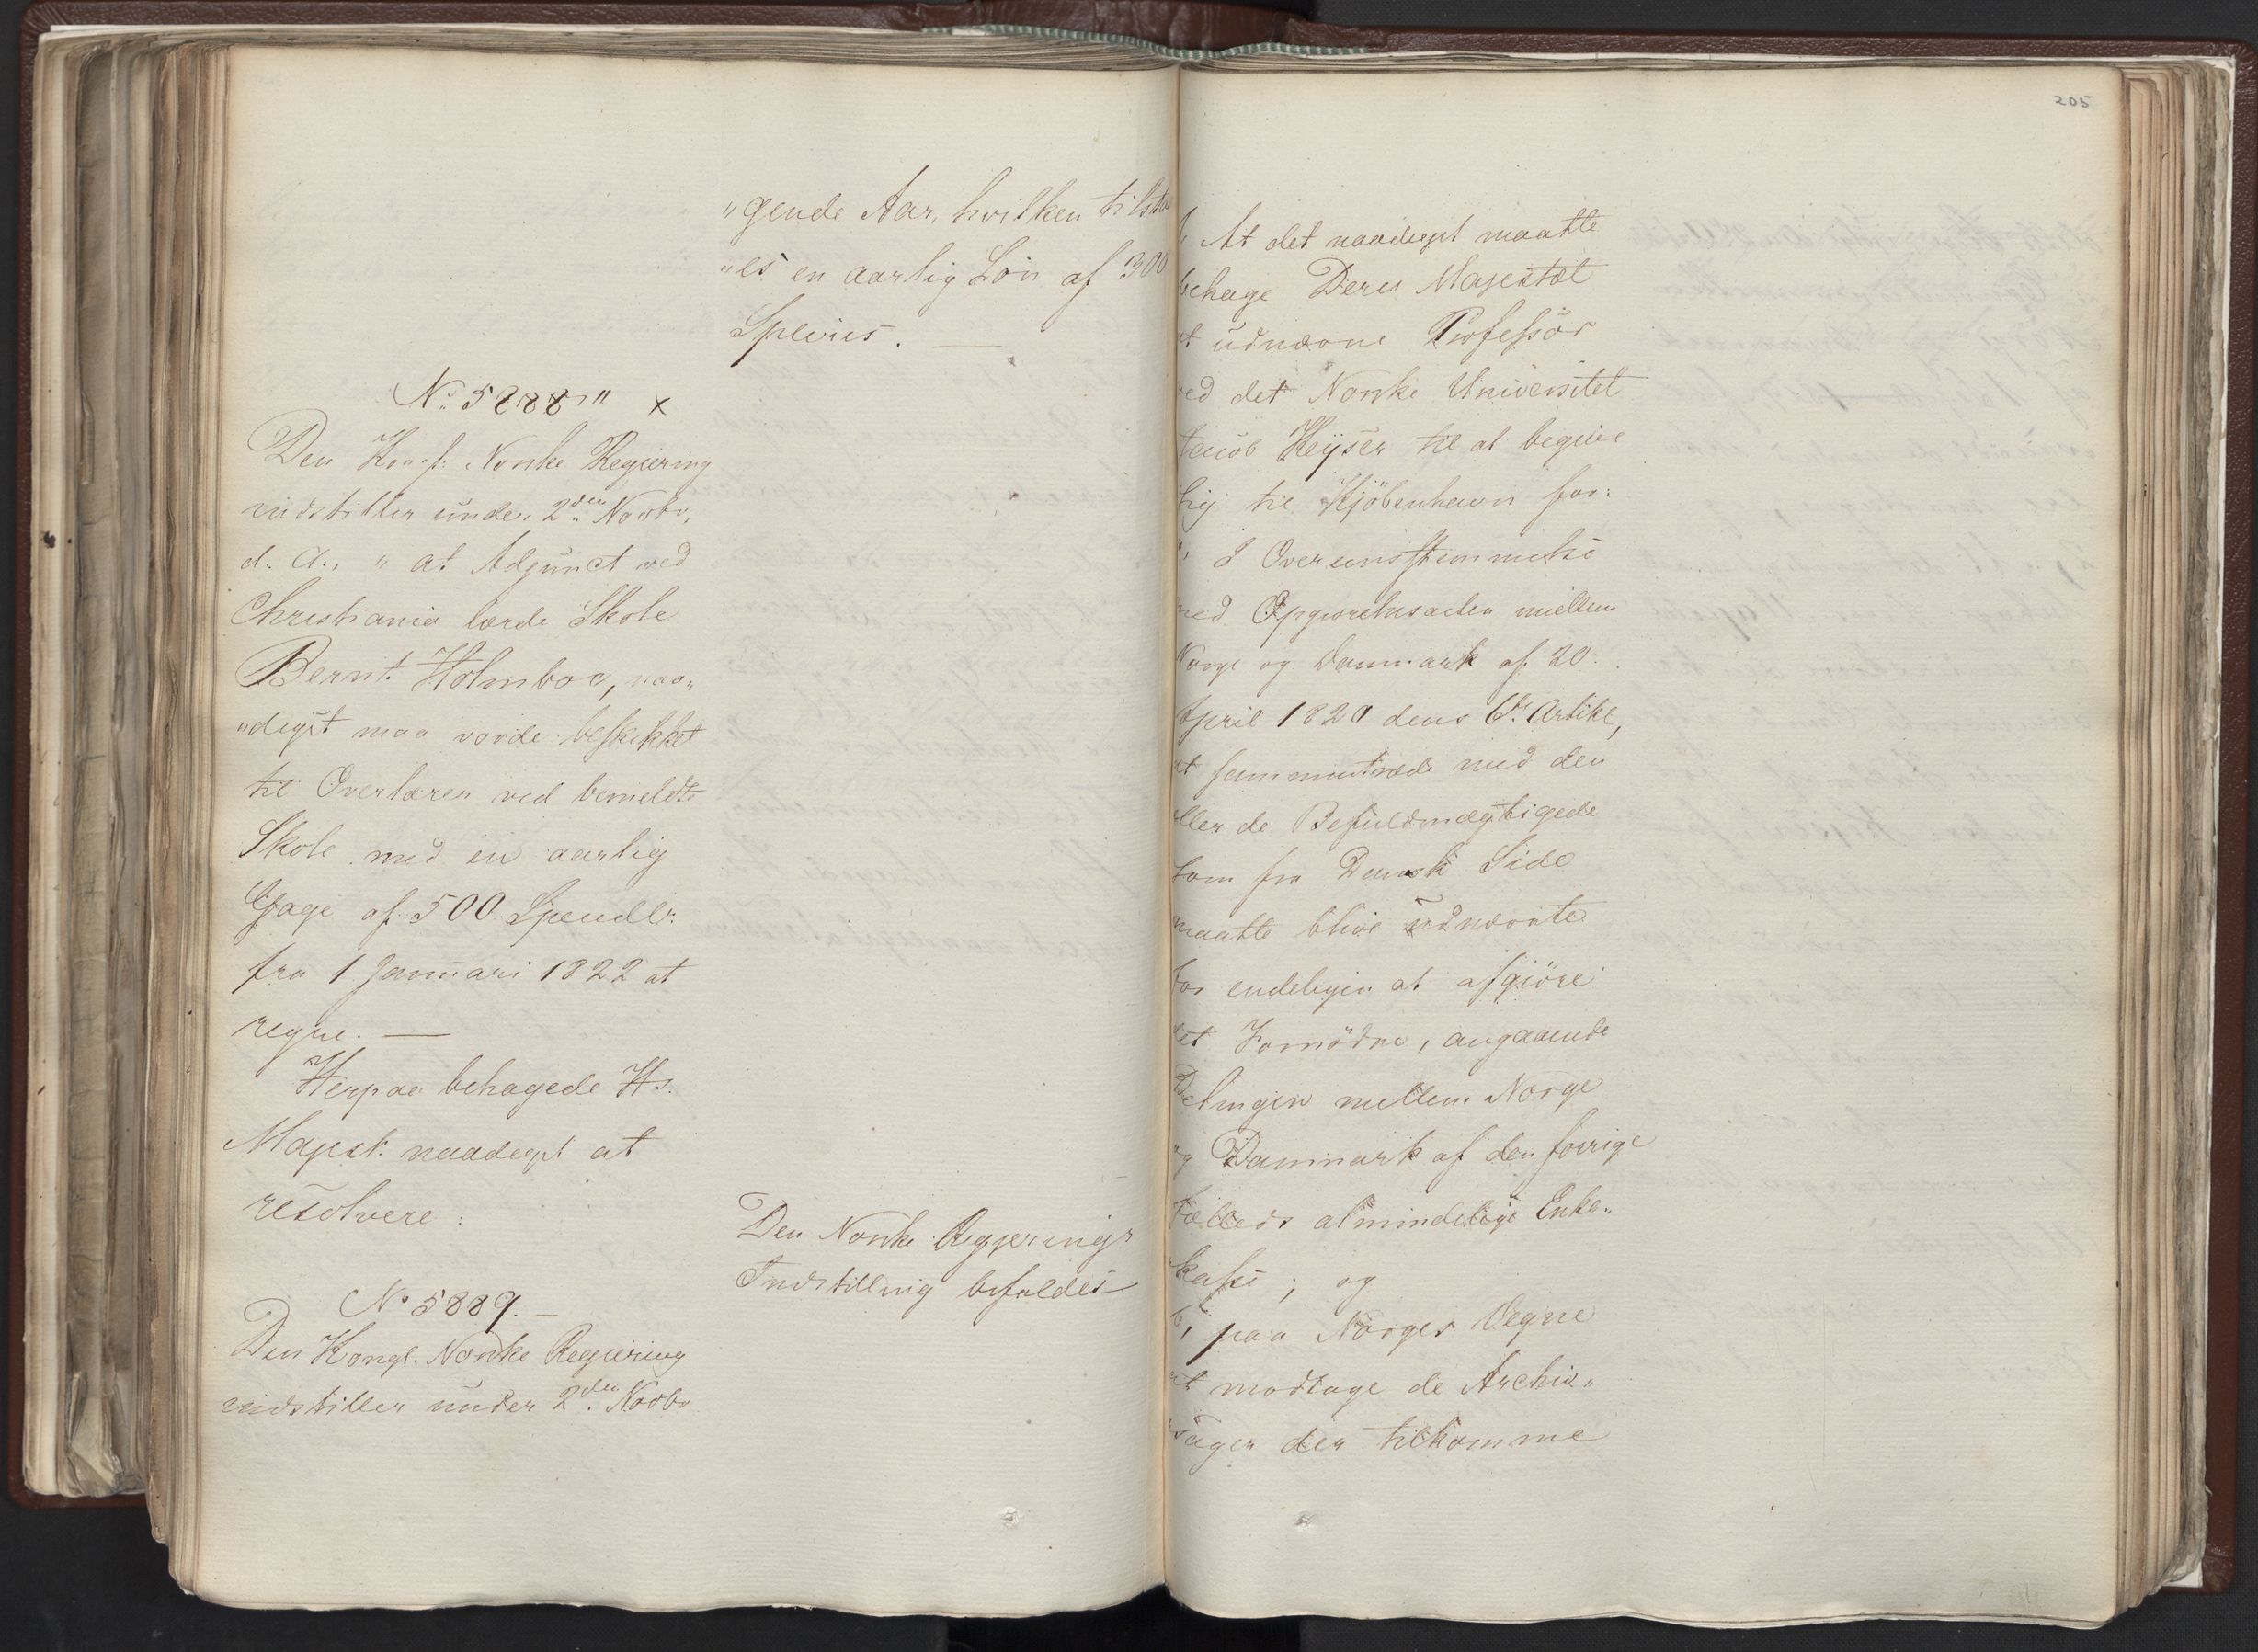 „gende Aar, hvilken tilsta
„es en aarlig Lön af 300
Species. —
No 5888" x
Den Kongl: Norske Regiering
indstiller under 2den Novbr,
d: A:, „ at Adjunct ved
Christiania lærde Skole
Bernt Holmboe, naa„
„digst maa vorde beskikket
til Overlærer ved bemeldte
Skole med en aarlig
Gage af 500 Speciedlr:
fra 1 Januari 1822 at
regne. —
Herpaa behagede Hs.
Majest: naadigst at
resolvere:
Den Norske Regjerings
Indstilling bifaldes
No 5889. —
Den Kongl. Norske Regiering
indstiller under 2den Novbr
205
At det naadigst maatte
behage Deres Majestæt
at udnævne Professor
ved det Norske Universitet
Jacob Keyser til at begive
sig til Kjöbenhavn for:
I Overeensstemmelse
med Opgiørelsesacten mellem
Norge og Danmark af 20.
April 1820 dens 6te Artikel,
at sammentræde med den
eller de Befuldmægtigede
som fra Dansk Side
maatte blive udnævnte
for endeligen at afgiöre
det Fornödne, angaaende
Delingen mellem Norge
og Danmark af den forrige
fælleds almindelige Enke„
kasse; og
paa Norges Vegne
at modtage de Archiv„
sager der tilkomme